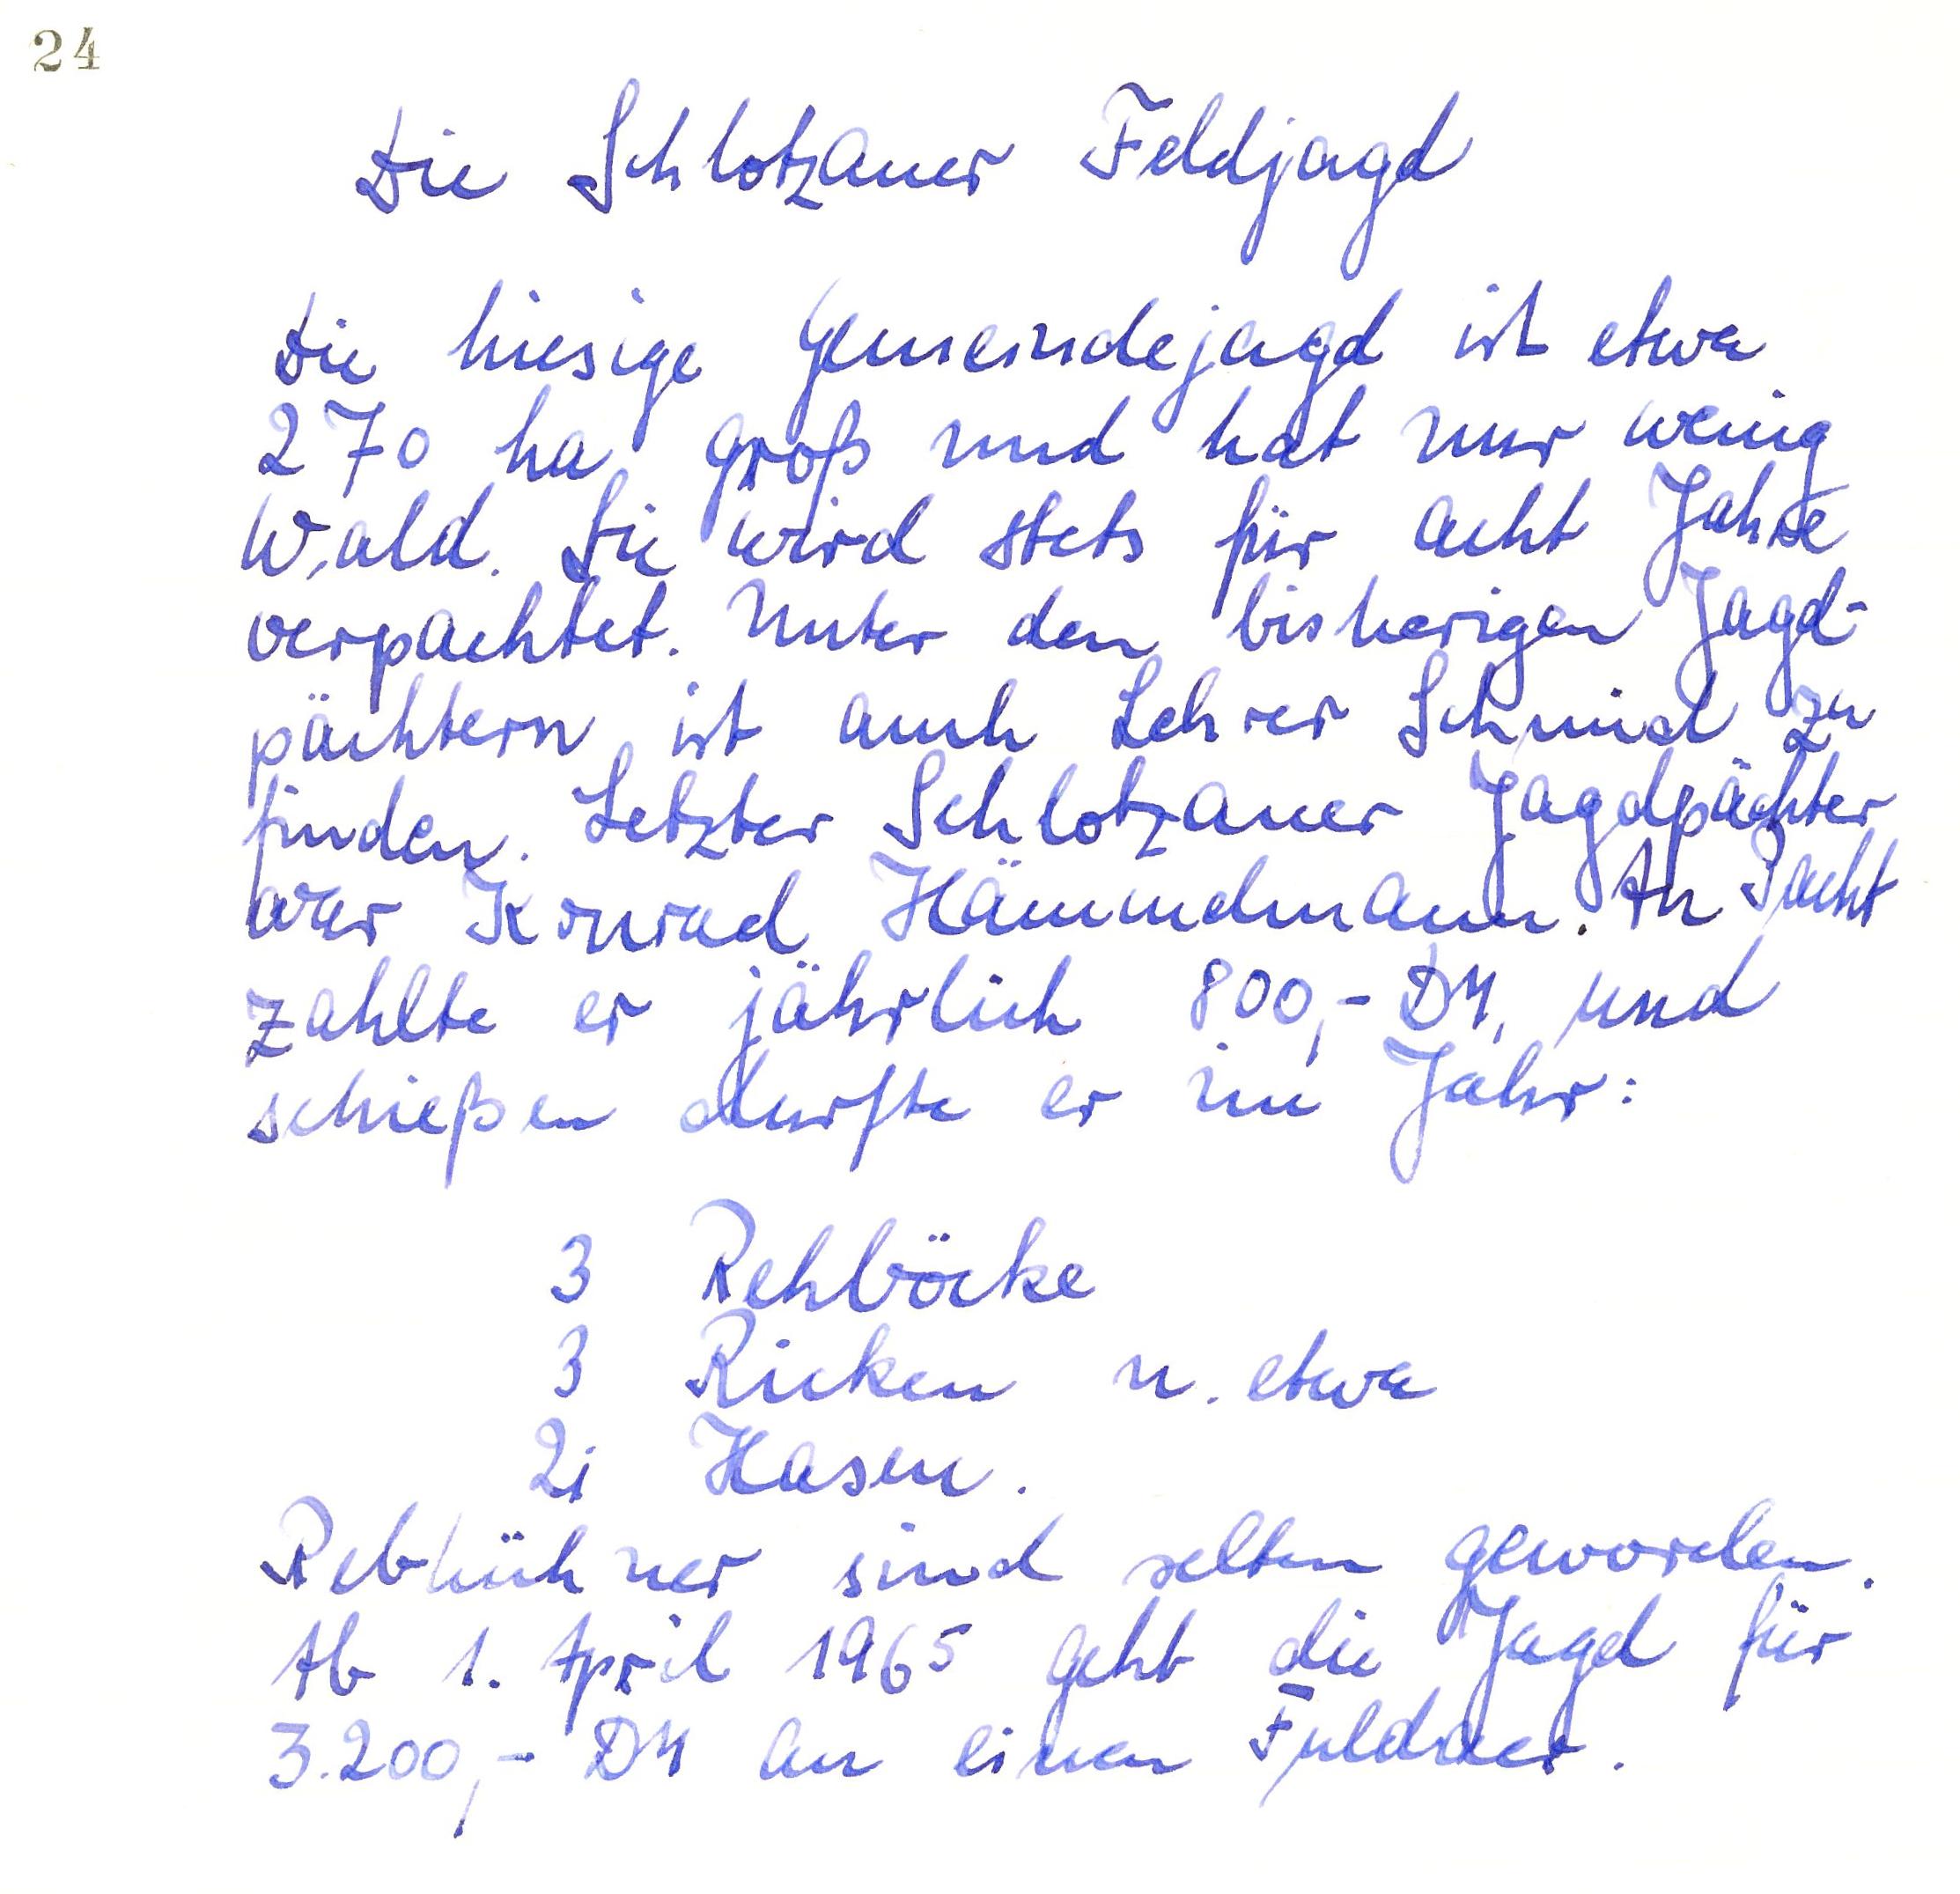 24
Die Schlotzauer Feldjagd
Die hiesige Gemeindejagd ist etwa
270 ha groß und hat nur wenig
Wald. Sie wird stets für acht Jahre
verpachtet. Unter den bisherigen Jagd-
pächtern ist auch Lehrer Schmid zu
finden. Letzter Schlotzauer Jagdpächter
war Konrad Hämmelmann. An Pacht
zahlte er jährlich 800,- DM, und
schießen durfte er im Jahr:
3 Rehböcke
3 Ricken u. etwa
Hasen.
Rebhühner sind selten geworden.
Ab 1. April 1965 geht die Jagd für
3.200,- DM an einen Fuldaer.